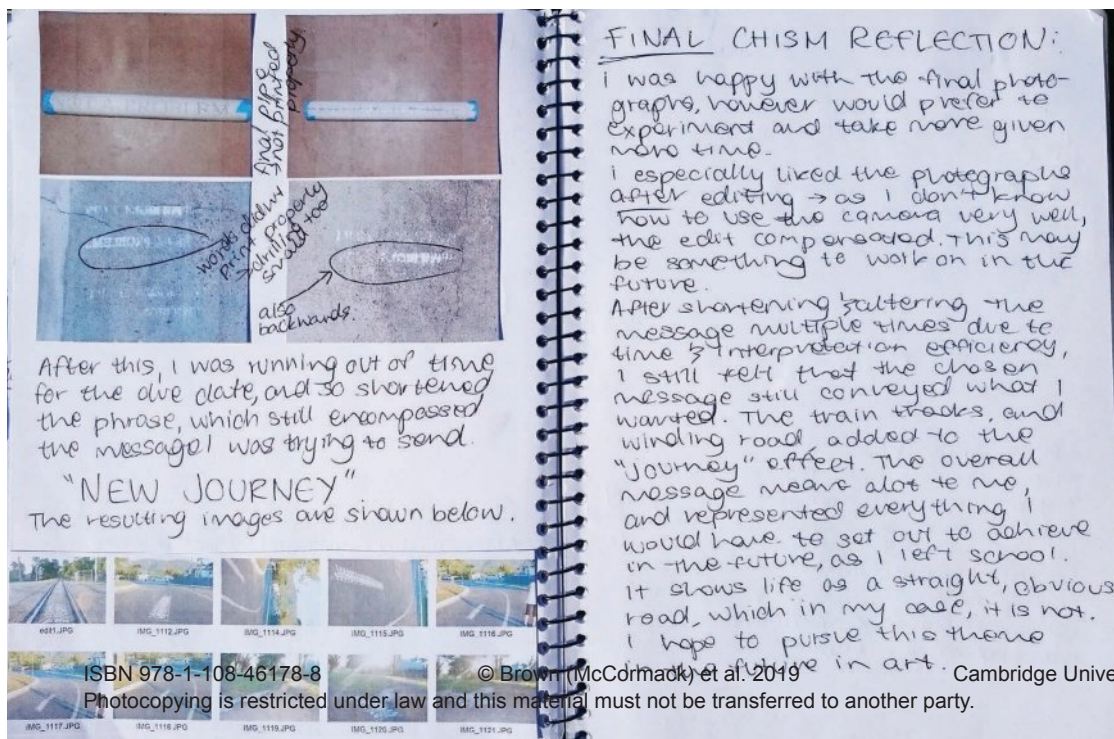 final pipe
→ not printed
properly
words didn't
print properly
→ drilling too
small
also
backwards.
After this, I was running out of time
for the due date, and so shortened
the phrase, which still encompassed
the message I was trying to send.
"NEW JOURNEY"
The resulting images are shown below.
edit1.JPG
IMG_1112.JPG
IMG_1114.JPG
IMG_1115.JPG
IMG_1116.JPG
IMG_1117.JPG
IMG_1118.JPG
IMG_1119.JPG
IMG_1120.JPG
IMG_1121.JPG
FINAL CHISM REFLECTION:
i was happy with the final photo-
graphs, however would prefer to
experiment and take more given
more time.
i especially liked the photographs
after editing → as I don't know
how to use the camera very well,
the edit compensated. This may
be something to work on in the
future.
After shortening & altering the
message multiple times due to
time & interpretation efficiency,
I still felt that the chosen
message still conveyed what I
wanted. The train tracks, and
winding road, added to the
"journey" effect. The overall
message means alot to me,
and represented everything I
would have to set out to achieve
in the future, as I left school.
It shows life as a straight, obvious
road, which in my case, it is not.
I hope to pursue this theme
in the future in art.
ISBN 978-1-108-46178-8 © Brown (McCormack) et al. 2019 Cambridge Unive
Photocopying is restricted under law and this material must not be transferred to another party.